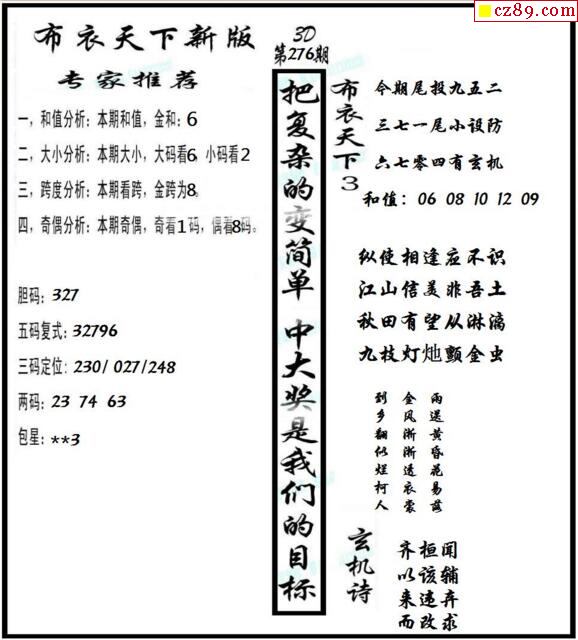 cz89.com
布衣天下新版
3D
第276期
专家推荐
一，和值分析：本期和值，金和：6
二，大小分析：本期大小，大码看6，小码看2
三，跨度分析：本期看跨，金跨为8。
四，奇偶分析：本期奇偶，奇看1码，偶看8码。
胆码：327
五码复式：32796
三码定位：230/ 027/248
两码：23 74 63
包星：**3
把复杂的变简单 中大奖是我们的目标
布衣天下3
今期尾投九五二
三七一尾小设防
六七零四有玄机
和值： 06 08 10 12 09
纵使相逢应不识
江山信美非吾土
秋田有望从淋漓
九枝灯灺颤金虫
到 金 雨
乡 风 送
翻 渐 黄
似 渐 昏
烂 透 花
柯 衣 易
人 裳 落
玄机诗
齐桓闻
以该辅
来违弃
而改求